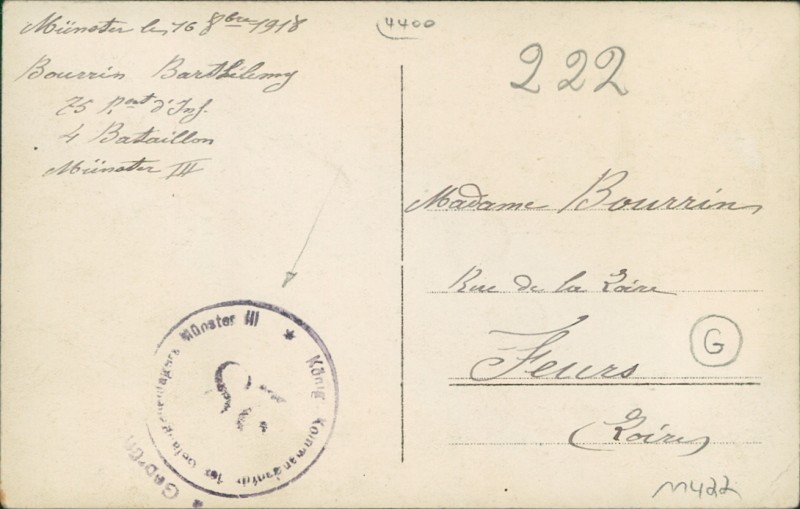 Münster le, 16 8bre 1918
4400
Bourrin Barthélemy
75 Rgnt d'Inf.
4 Bataillon
Münster III
222
Madame Bourrin
Rue de la Loire
Feurs
(Loire)
G
König. Kommandantur des Gefangenenlagers Münster III ★
Geprüft
M422